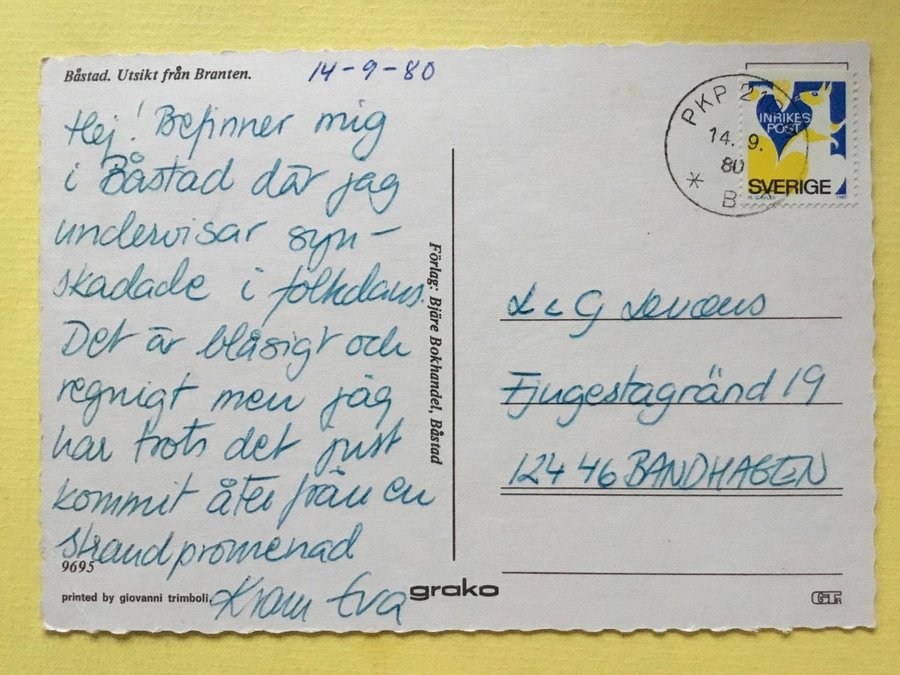 Båstad. Utsikt från Branten.
14-9-80
Hej! Befinner mig
i Båstad där jag
undervisar syn-
skadade i folkdans.
Det är blåsigt och
regnigt men jag
har trots det just
kommit åter från en
strandpromenad
Kram Eva
9695
printed by giovanni trimboli.
grako
Förlag: Bjäre Bokhandel, Båstad
PKP
14. 9.
80
* B
INRIKES
POST
SVERIGE
G
Fjugestagränd 19
124 46 BANDHAGEN